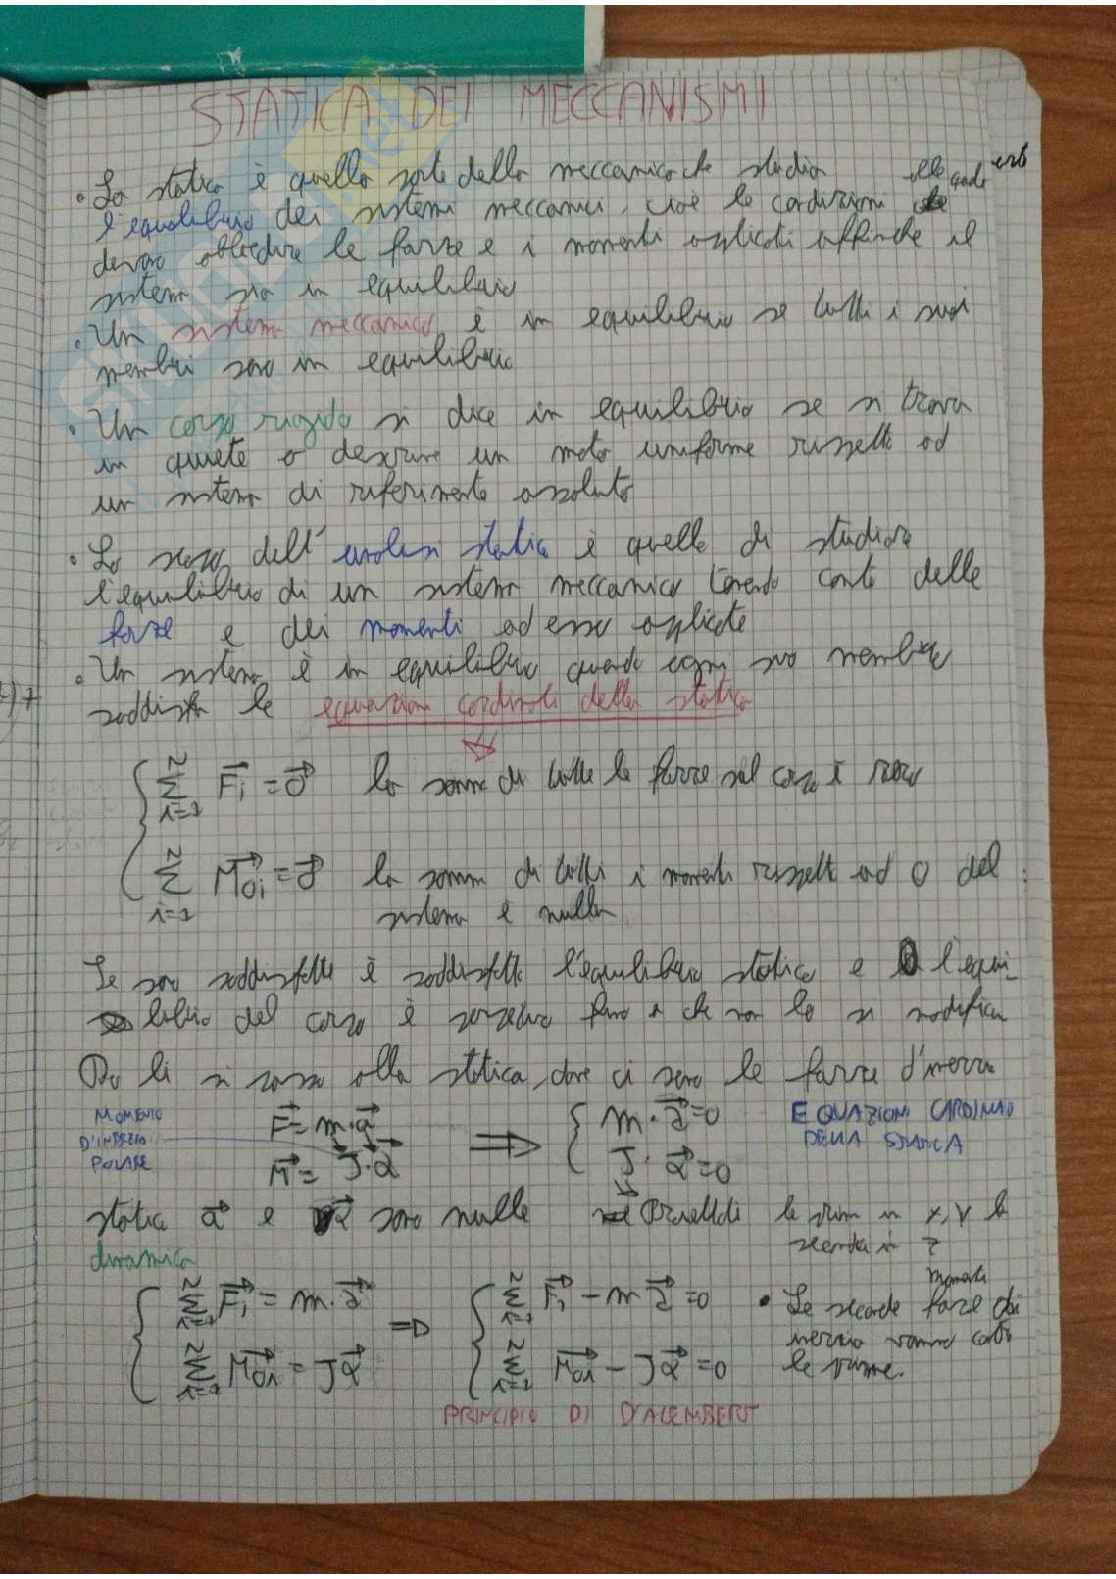 STATICA DEI MECCANISMI
• La statica è quella parte della meccanica che studia
l'equilibrio dei sistemi meccanici, cioè le condizioni che
devono obbedire le forze e i momenti applicati affinché il
sistema sia in equilibrio
• Un sistema meccanico è in equilibrio se tutti i suoi
membri sono in equilibrio
• Un corpo rigido si dice in equilibrio se si trova
in quiete o descrive un moto uniforme rispetto ad
un sistema di riferimento assoluto
• Lo scopo dell'analisi statica è quello di studiare
l'equilibrio di un sistema meccanico tenendo conto delle
forze e dei momenti ad esso applicate
• Un sistema è in equilibrio quando ogni suo membro
soddisfa le equazioni cardinali della statica
Σ i=1 F⃗i = 0⃗ la somma di tutte le forze sul corpo è
Σ i=1 M⃗oi = 0⃗ la somma di tutti i momenti rispetto ad O del
sistema è nulla
Se sono soddisfatte è soddisfatto l'equilibrio statico e l'equi-
librio del corpo è fino a che non lo si modifica
Da lì si passa alla statica, dove ci sono le forze d'inerzia
MOMENTO
D'INERZIA
POLARE
F⃗ = m·a⃗ ⇒ m·a⃗ = 0
M⃗ = J·α⃗ J·α⃗ = 0
EQUAZIONI CARDINALI
DELLA STATICA
statica a⃗ e α⃗ sono nulle le prime in x, y la
seconda in z
dinamica
Σ i=1 F⃗i = m·a⃗ ⇒ Σ i=1 F⃗i − m a⃗ = 0
Σ i=1 M⃗oi = J α⃗ Σ i=1 M⃗oi − J α⃗ = 0
momenti
• Le seconde forze di
inerzia vanno contro
le prime.
PRINCIPIO DI D'ALEMBERT